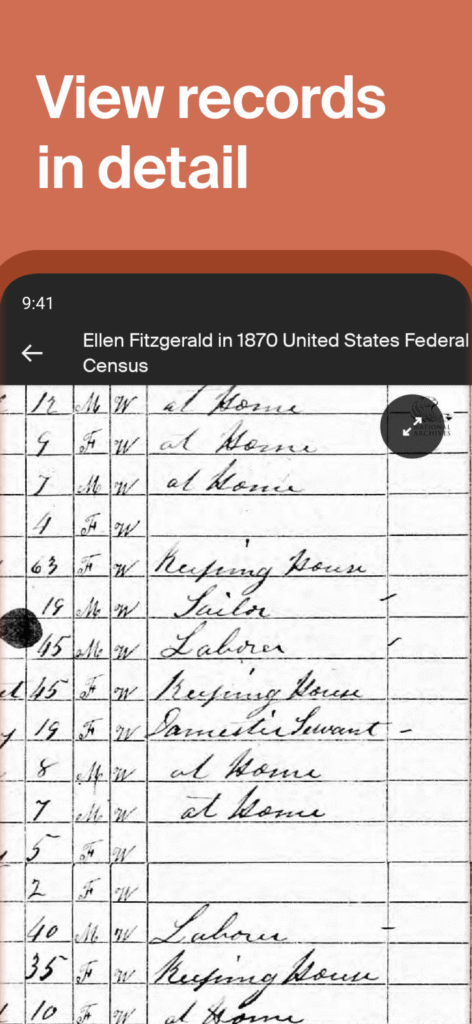 View records
in detail
9:41
Ellen Fitzgerald in 1870 United States Federal
Census
12 M W at Home
NATIONAL
ARCHIVES
9 F W at Home
7 M W at Home
4 F W
63 F W Keeping House
19 M W Sailor
45 M W Laborer
45 F W Keeping House
19 F W Domestic Servant –
8 M W at Home
7 M W at Home
5 F W
2 F W
40 M W Laborer –
35 F W Keeping House
10 F W at Home